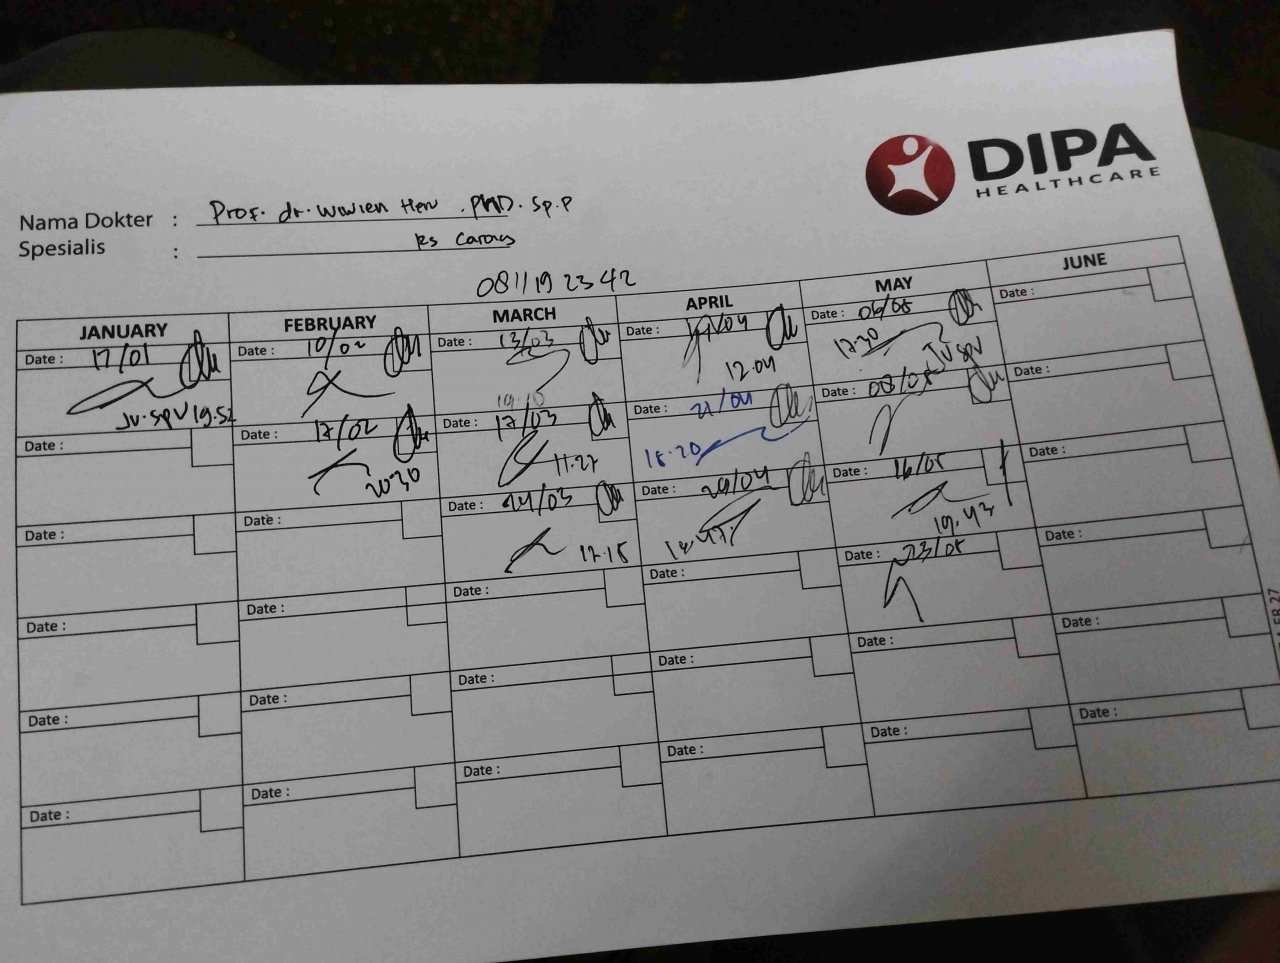 DIPA
HEALTHCARE
Nama Dokter : Prof. dr. Wiwien Heru .PHD. Sp.P
Spesialis : RS Carolus
0811192342
JANUARY FEBRUARY MARCH APRIL MAY JUNE
Date : 17/01 Date : 10/02 Date : 13/03 Date : /04 Date : 06/05 Date :
Jv. SPV 19.52 19.10 12.04 17.30 Jv SPV
Date : Date : 17/02 Date : 17/03 Date : 21/04 Date : 08/05 Date :
20.30 11.27 18.20
Date : Date : Date : 24/03 Date : /04 Date : 16/05 Date :
17.15 19.43
Date : Date : Date : Date : Date : 23/05 Date :
Date : Date : Date : Date : Date : Date :
Date : Date : Date : Date : Date : Date :
27